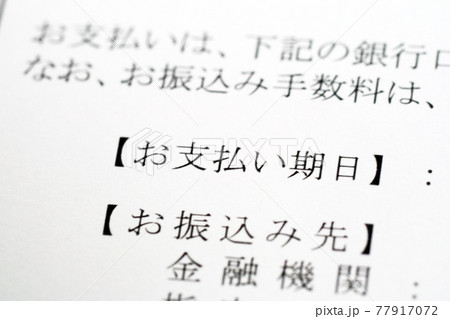 お支払いは、下記の銀行口
なお、お振込み手数料は、
【お支払い期日】：
【お振込み先】
金融機関：
pixta.jp - 77917072